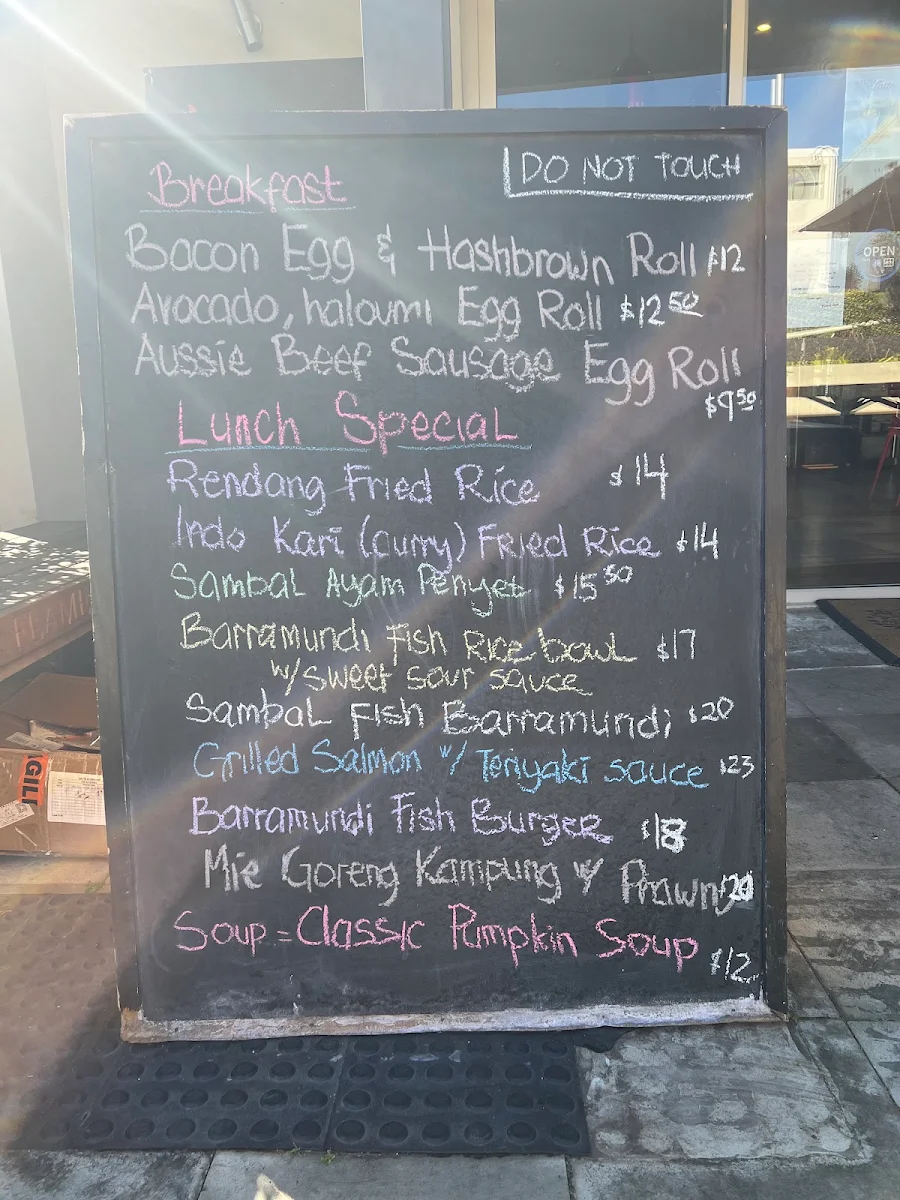 Breakfast
DO NOT TOUCH
Bacon Egg & Hashbrown Roll $12
Avocado, haloumi Egg Roll $12.50
Aussie Beef Sausage Egg Roll
$9.50
Lunch Special
Rendang Fried Rice $14
Indo Kari (curry) Fried Rice $14
Sambal Ayam Penyet $15.50
Barramundi Fish Rice bowl $17
w/sweet sour sauce
Sambal Fish Barramundi $20
Grilled Salmon w/ Teriyaki sauce $23
Barramundi Fish Burger $18
Mie Goreng Kampung w/ Prawn $20
Soup = Classic Pumpkin Soup
$12
OPEN
FLAME